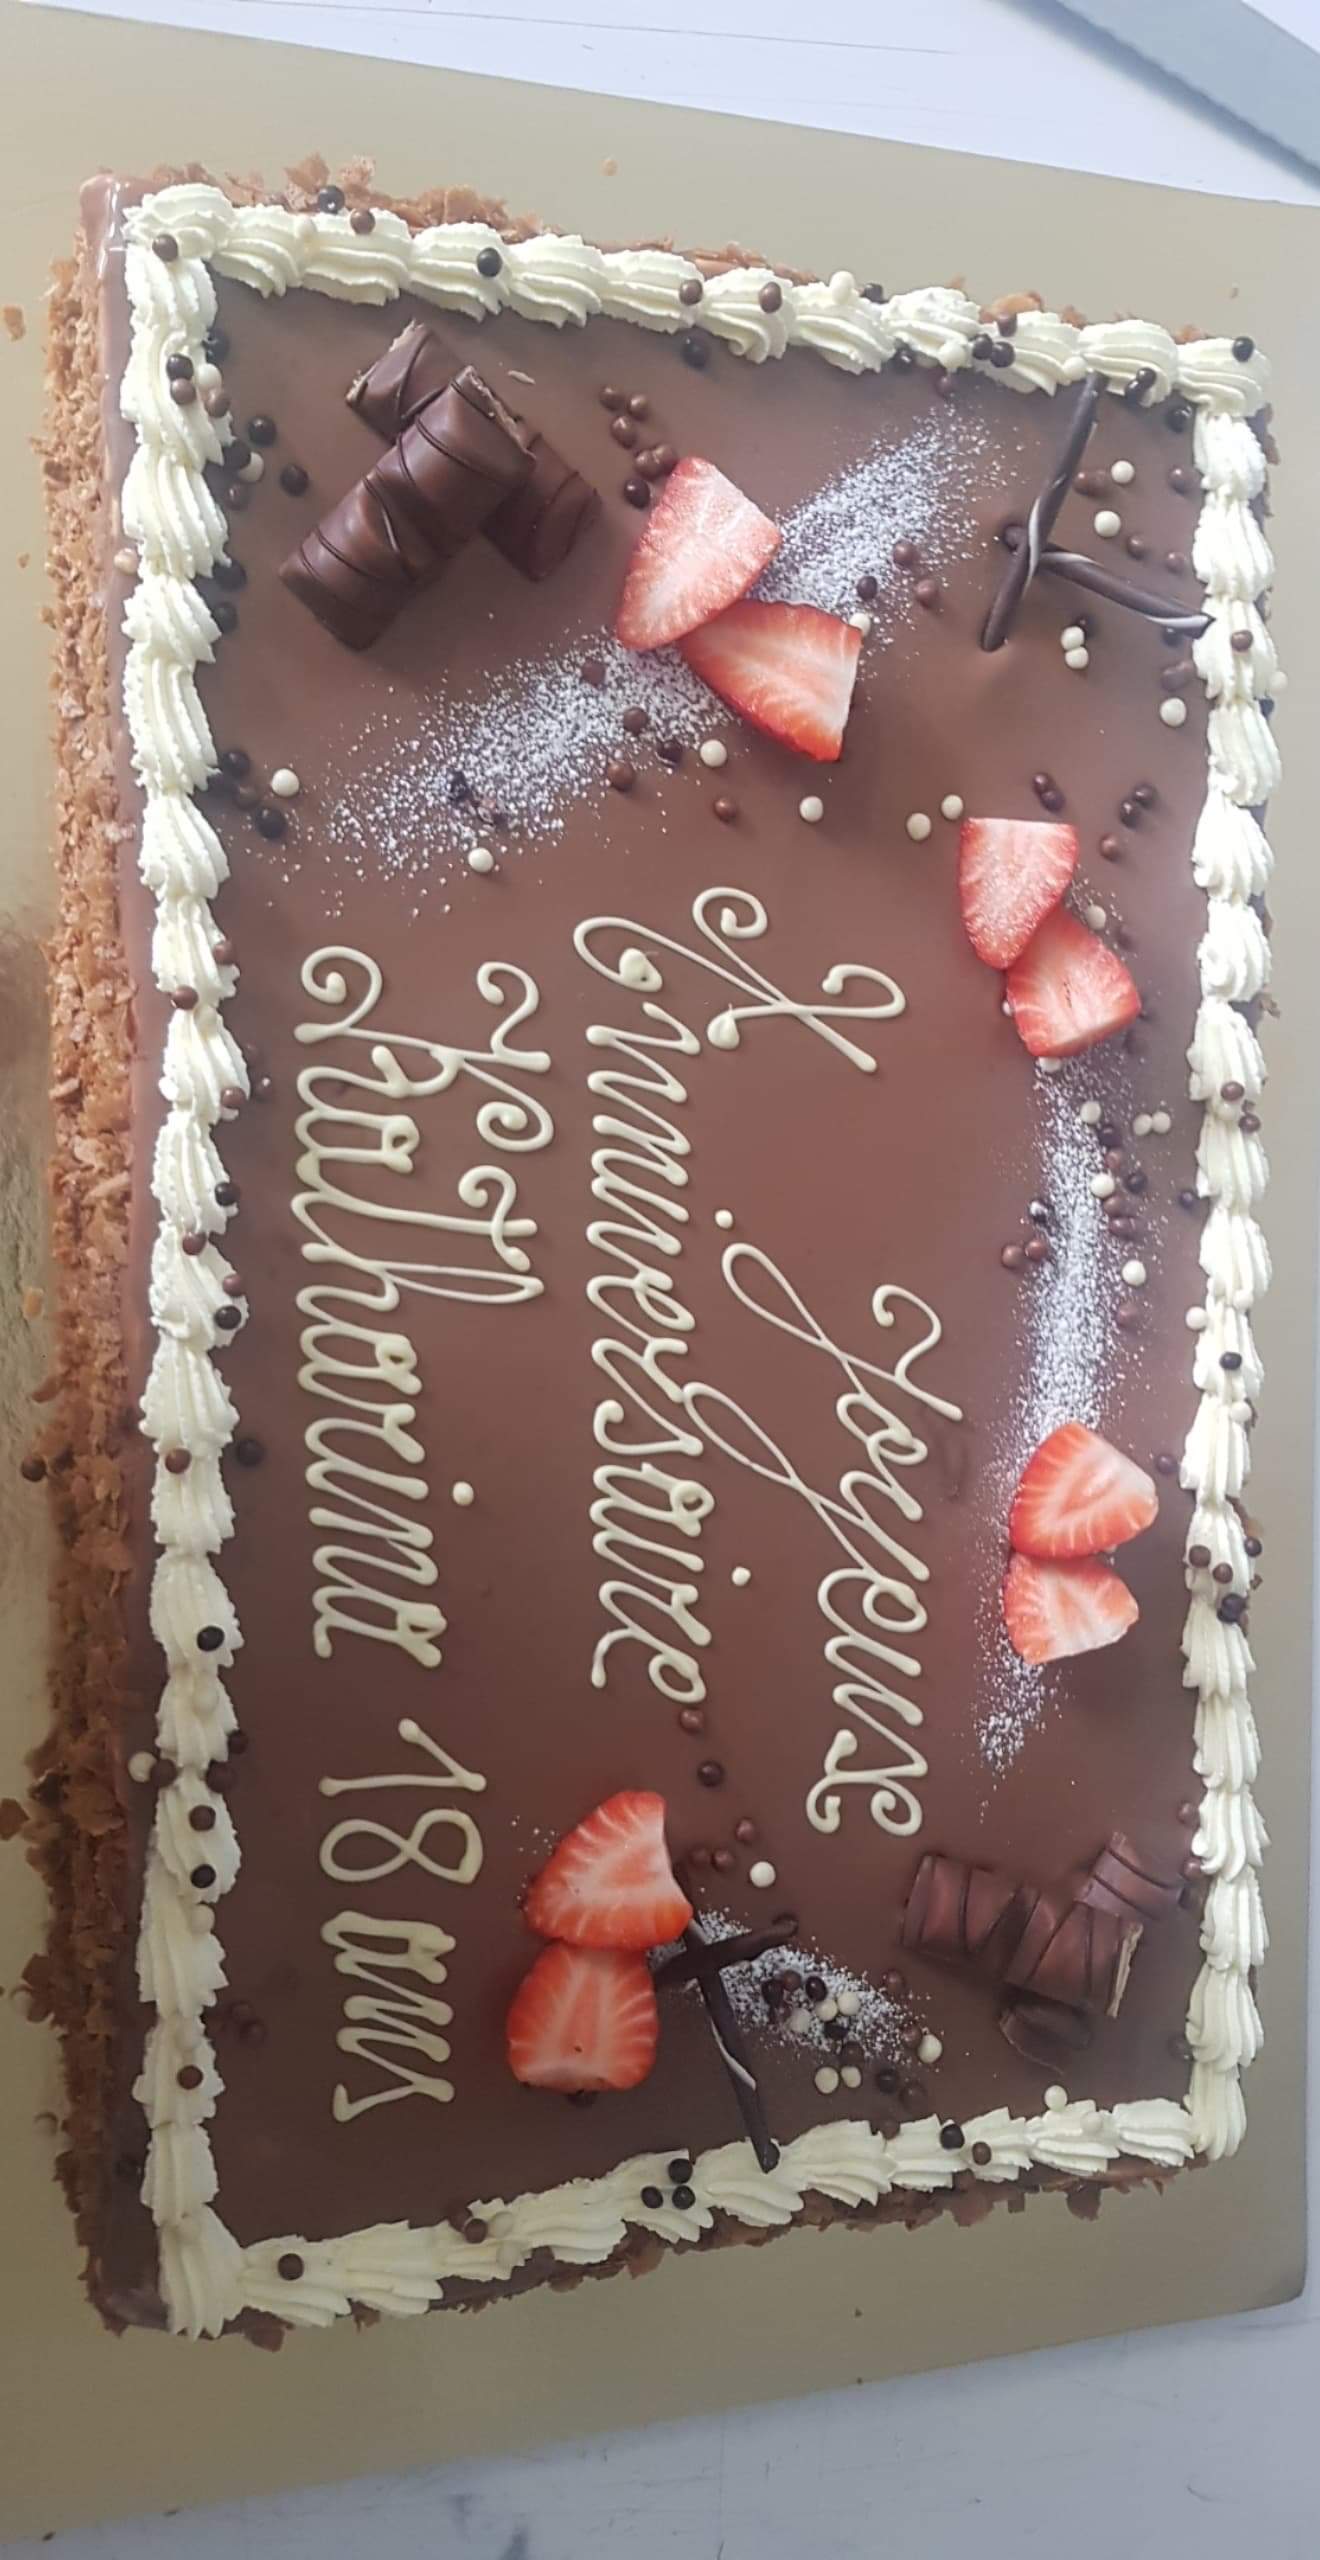 Joyeux
Anniversaire
Katharina 18 ans